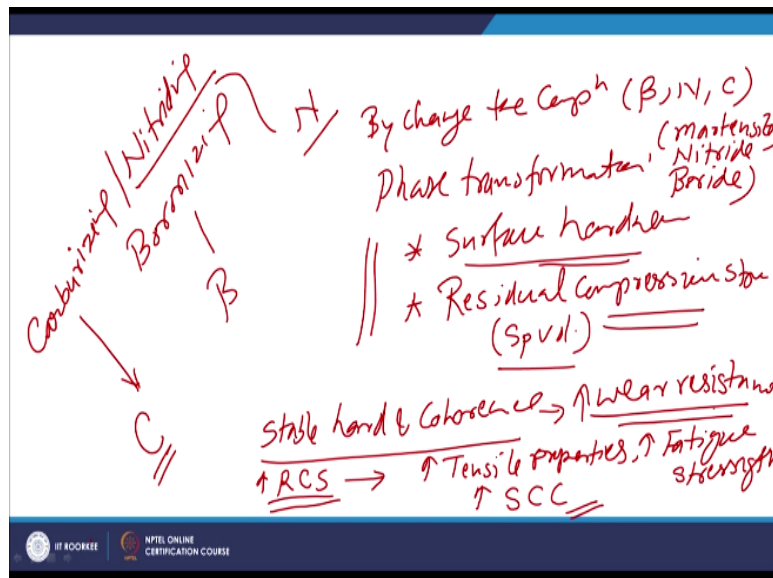 Carburizing/Nitriding
Boronizing
B
C
N
By change the Compn (B, N, C)
Phase transformation (Martensite
Nitride
Boride)
* Surface hardness
* Residual compression stre
(Sp Vol.)
Stable hard & Coherence → ↑ wear resistance
↑ RCS → ↑ Tensile properties, ↑ Fatigue
strength
↑ SCC
IIT ROORKEE
NPTEL ONLINE
CERTIFICATION COURSE